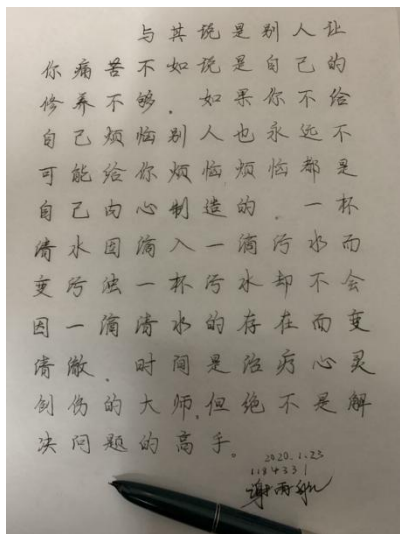 与其说是别人让
你痛苦不如说是自己的
修养不够。如果你不给
自己烦恼别人也永远不
可能给你烦恼烦恼都是
自己内心制造的。一杯
清水因滴入一滴污水而
变污浊一杯污水却不会
因一滴清水的存在而变
清澈。时间是治疗心灵
创伤的大师,但绝不是解
决问题的高手。
2020.1.23
1184331
谢雨